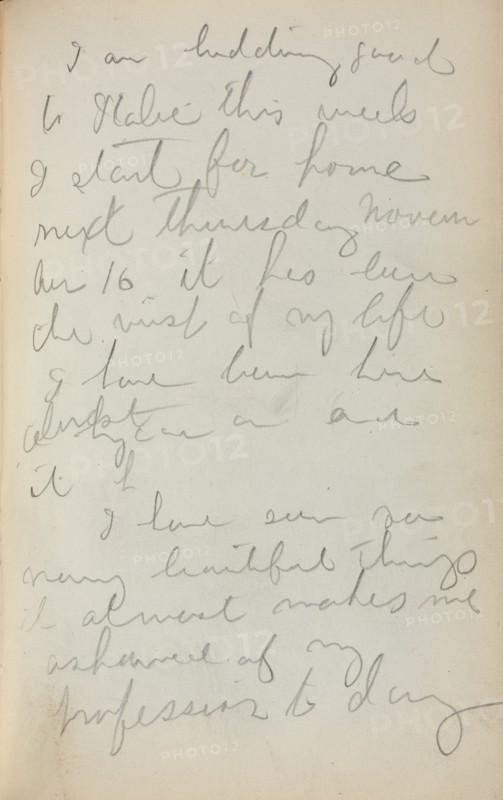 I am bidding good
to Italie this week
I start for home
next Thursday Novem
ber 16 it has been
the visit of my life
I have been here
almost a year
it
I have seen so
many beautiful things
it almost makes me
ashamed of my
profession to day